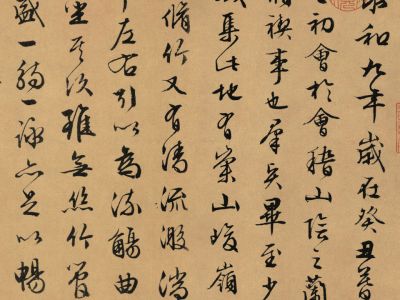 永和九年歲在癸丑暮
之初會於會稽山陰之蘭
脩禊事也羣賢畢至少
咸集此地有崇山峻嶺
脩竹又有清流激湍
左右引以為流觴曲
坐其次雖無絲竹管
盛一觴一詠亦足以暢